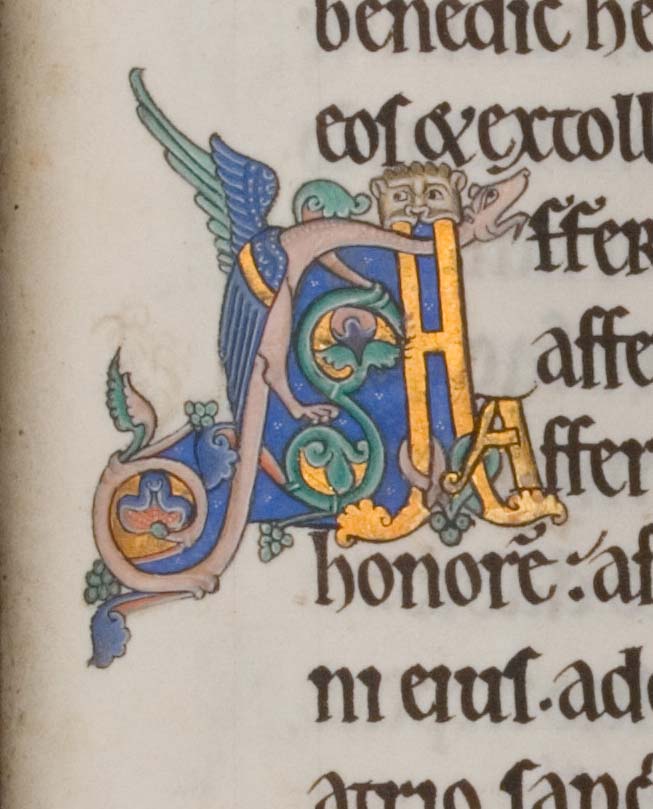 benedic he
eos & extoll
Affer
affe
Affer
honorē: af
ni eius. ado
atrio sanc